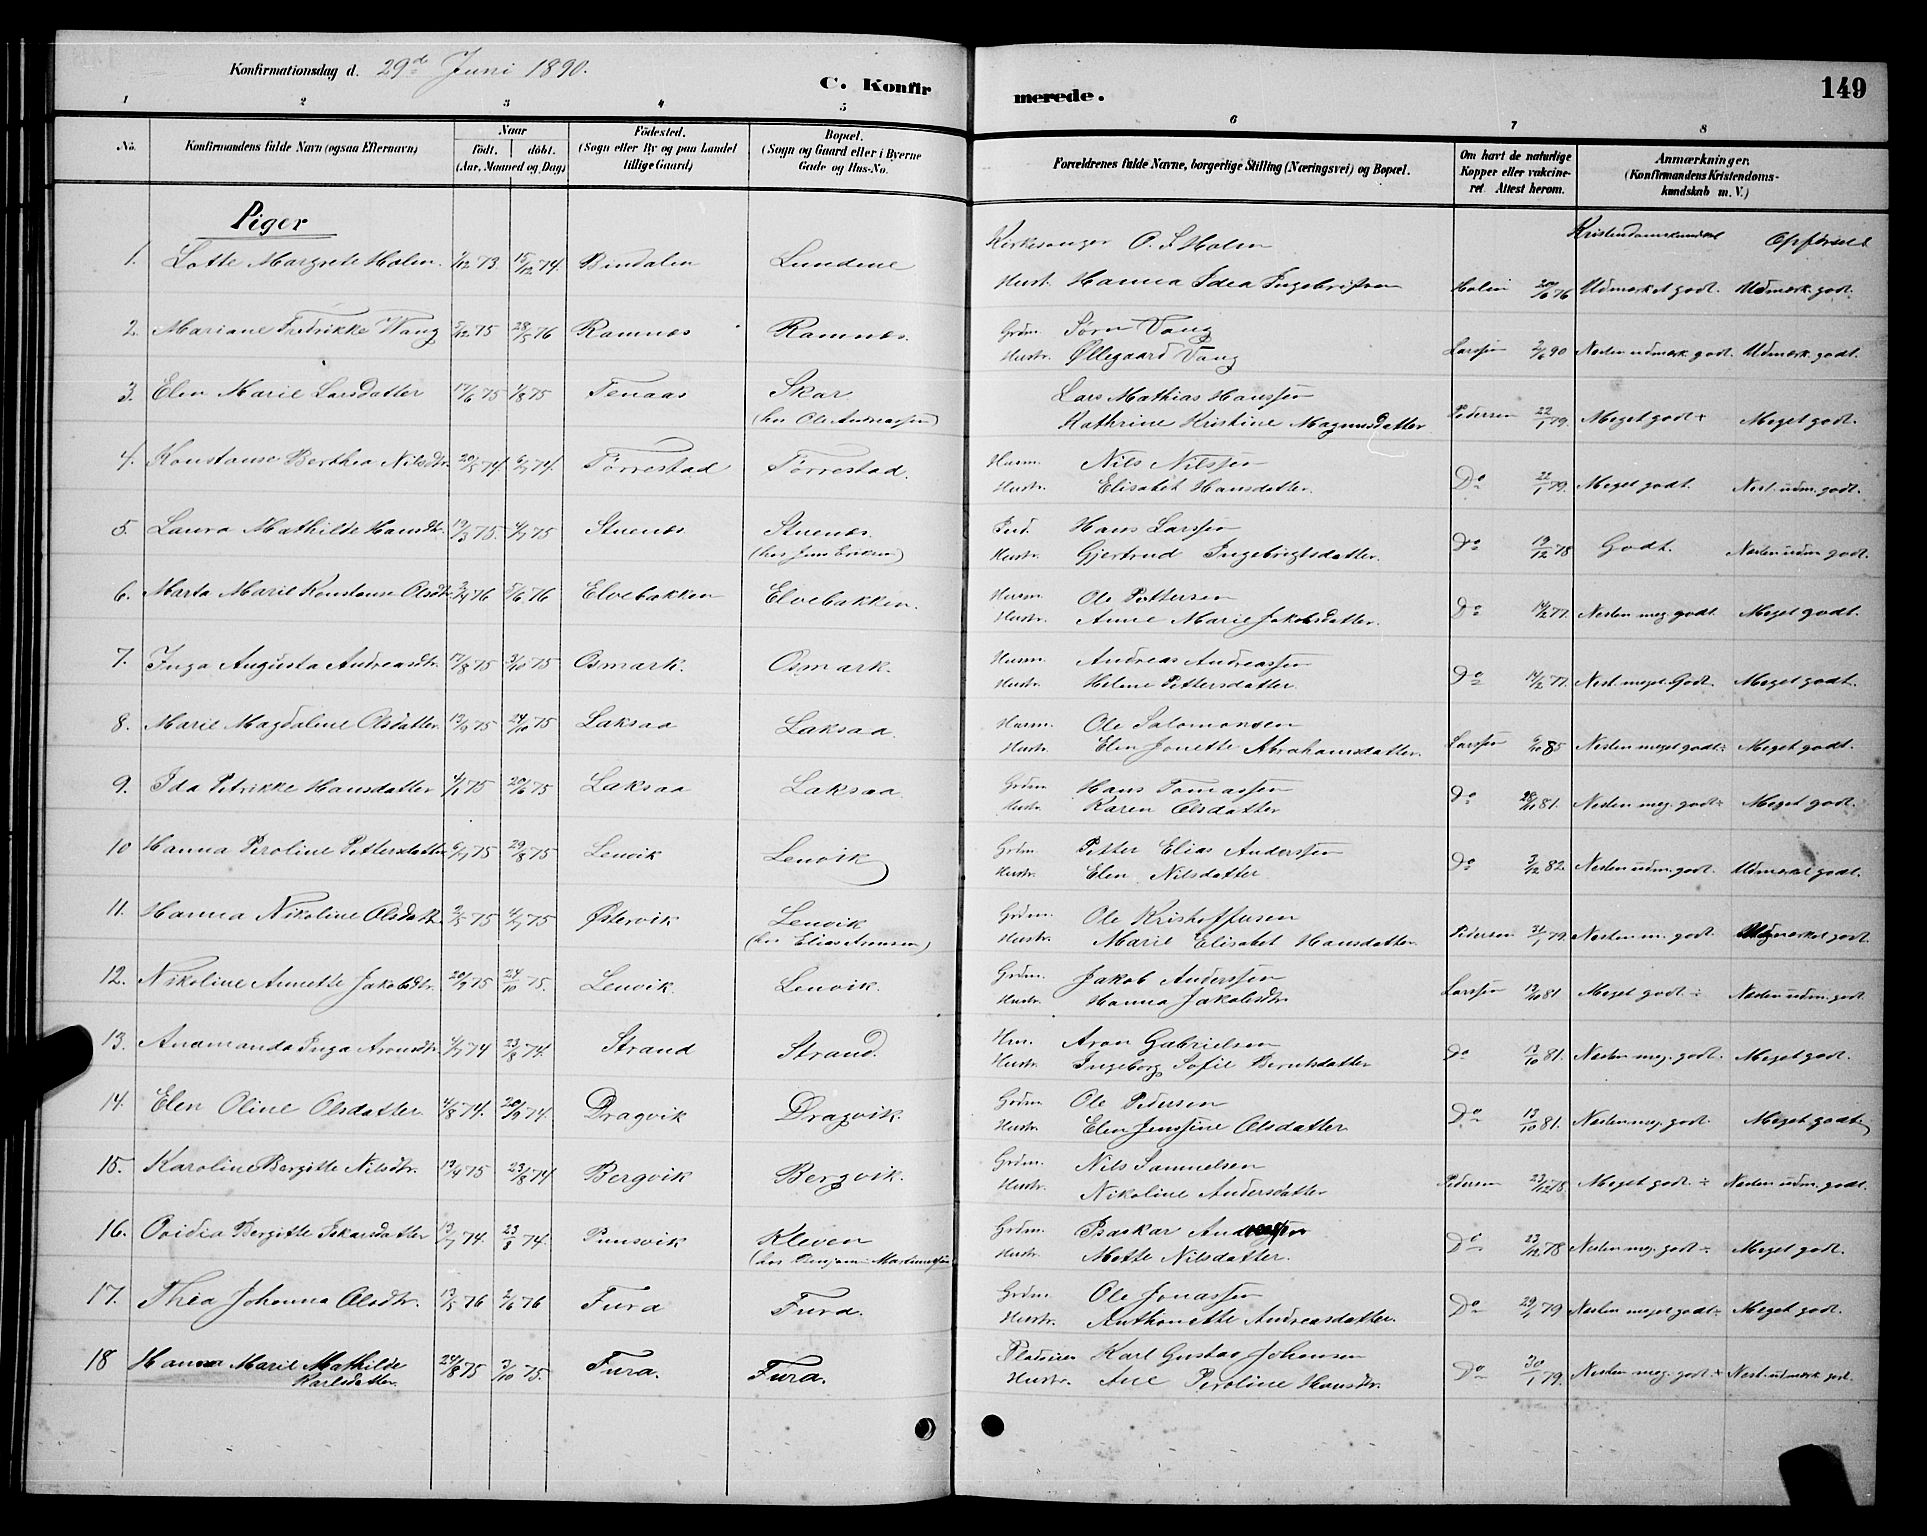 Konfirmationsdag d. 29de Juni 1890.
C. Konfirmerede.
149
1 2 3 4 5 6 7 8
No.
Konfirmandens fulde Navn (ogsaa Efternavn)
Naar
født. | døbt.
(Aar, Maaned og Dag)
Fødested.
(Sogn eller By og paa Landet
tillige Gaard)
Bopæl.
(Sogn og Gaard eller i Byerne
Gade og Hus-No.
Forældrenes fulde Navne, borgerlige Stilling (Næringsvei) og Bopæl.
Om havt de naturlige
Kopper eller vakcine-
ret. Attest herom.
Anmærkninger.
(Konfirmandens Kristendoms-
kundskab m. V.)
Piger
Kristendomskundskab Opførsel
1. Lotte Margrete Holm. 1/12 73. 15/12 74. Bindalen Lundene
Kirkesanger O. S. Holm
Hust. Hanna Idea Ingebrigtsen Holm 20/6 76 Udmærket godt. Udmærk. godt.
2. Mariane Fredrikke Wang 5/12 75 28/5 76 Ramnes Ramnes.
Grdm. Sørn Vang
Hustr. Øllegaard Vang Larssen 2/6 90 Nesten udmærk. godt. Udmærk. godt.
3. Elen Marie Larsdatter 17/6 75 1/8 75 Tenaas Skar
(hos Ole Andreassen)
Lars Mathias Hanssen
Kathrine Kristine Magnusdatter Pedersen 22/1 79. Meget godt ÷ Meget godt.
4. Konstanse Berthea Nilsdtr. 20/5 74 6/7 74 Tørrestad Tørrestad.
Husm. Nils Nilssen
Hustr. Elisabet Hansdatter. Do 22/1 79. Meget godt. Nest. udm. godt.
5. Laura Mathilde Hansdtr. 19/3 75. 4/7 75 Stuenes Stuenes.
(hos Jens Eriksen)
Ind. Hans Larssen
Hustr. Gjertrud Ingebrigtsdatter. Do 19/12 78 Godt. Nesten udm. godt.
6. Marta Marie Konstanse Olsdtr. 2/4 76 5/6 76 Elvebakken Elvebakken.
Husm. Ole Pettersen
Hustr. Anne Marie Jakobsdatter. Do 14/2 77. Nesten meg. godt. Meget godt.
7. Inga Augusta Andreasdtr. 17/8 75 3/10 75 Osmark. Osmark.
Husm. Andreas Andreassen
Hustr. Helene Pettersdatter. Do 14/2 77. Nest. meget Godt Meget godt.
8. Marie Magdaline Olsdatter. 19/9 75 24/10 75 Laksaa Laksaa
Husm. Ole Salomonsen
Hustr. Elen Jonette Abrahamsdatter. Larssen 6/10 85 Nesten meget godt ÷ Meget godt.
9. Ida Petrikke Hansdatter 4/1 75 20/6 75 Laksaa Laksaa
Grdm Hans Tomassen
Hustr. Karen Olsdatter Do 28/10 81. Nesten meg. godt ÷ Meget godt.
10 Hanna Peroline Pettersdatter 6/7 75 29/8 75 Lenvik Lenvik
Grdm. Petter Elias Anderssen
Hustr. Elen Nilsdatter Do 3/12 82. Nesten udm. godt. Udmærket godt.
11. Hanna Nikoline Olsdtr. 2/5 75 4/7 75 Østervik Lenvik
(hos Elias Aronsen)
Grdm. Ole Kristoffersen
Hustr. Marie Elisabet Hansdatter. Pedersen 31/1 79. Nesten m. godt. Udmærket godt.
12. Nikoline Annette Jakobsdtr. 20/9 75 24/10 75. Lenvik. Lenvik.
Grdm. Jakob Anderssen
Hustr. Hanna Jakobsdtr Larssen 13/10 81 Meget godt ÷ Nesten udm. godt.
13. Anamanda Inga Aronsdtr. 4/7 74 23/8 74. Strand Strand.
Hm. Aron Gabrielsen
Hustr. Ingeborg Sofie Berntsdatter Do 13/10 81. Nesten meg. godt. Meget godt.
14. Elen Oline Olsdatter 4/8 74. 20/9 74. Dragvik Dragvik.
Grdm. Ole Pedersen
Hustr. Elen Jenssine Olsdatter Do 13/10 81. Nesten meg. godt. Meget godt
15. Karoline Bergitte Nilsdtr. 19/4 75 23/8 74 Bergvik Bergvik.
Grdm. Nils Samuelsen
Hustr. Nikoline Andersdatter Pedersen 23/12 78. Meget godt ÷ Nesten udm. godt.
16. Ovidia Bergitte Iskarsdatter 13/7 74. 23/8 74. Punsvik Kleven
(hos Benjamin Martinussen
Grdm. Isaskar Andreassen
Hustr. Mette Nilsdatter. Do 23/12 78 Nesten meg. godt ÷ Meget godt.
17. Thea Johanna Olsdtr. 13/5 76 2/6 76 Fura Fura.
Grdm. Ole Jonassen
Hustr. Anthonette Andreasdatter. Do 29/1 79 Nesten meget godt ÷ Meget godt.
18 Hanna Marie Mathilde
Karlsdatter. 24/8 75 3/10 75. Fura. Fura.
Karl Gustav Johansen
Hustr. Ane Peroline Hansdtr. Do 30/1 79. Nesten meg. godt. ÷ Nest. udmærk. godt.